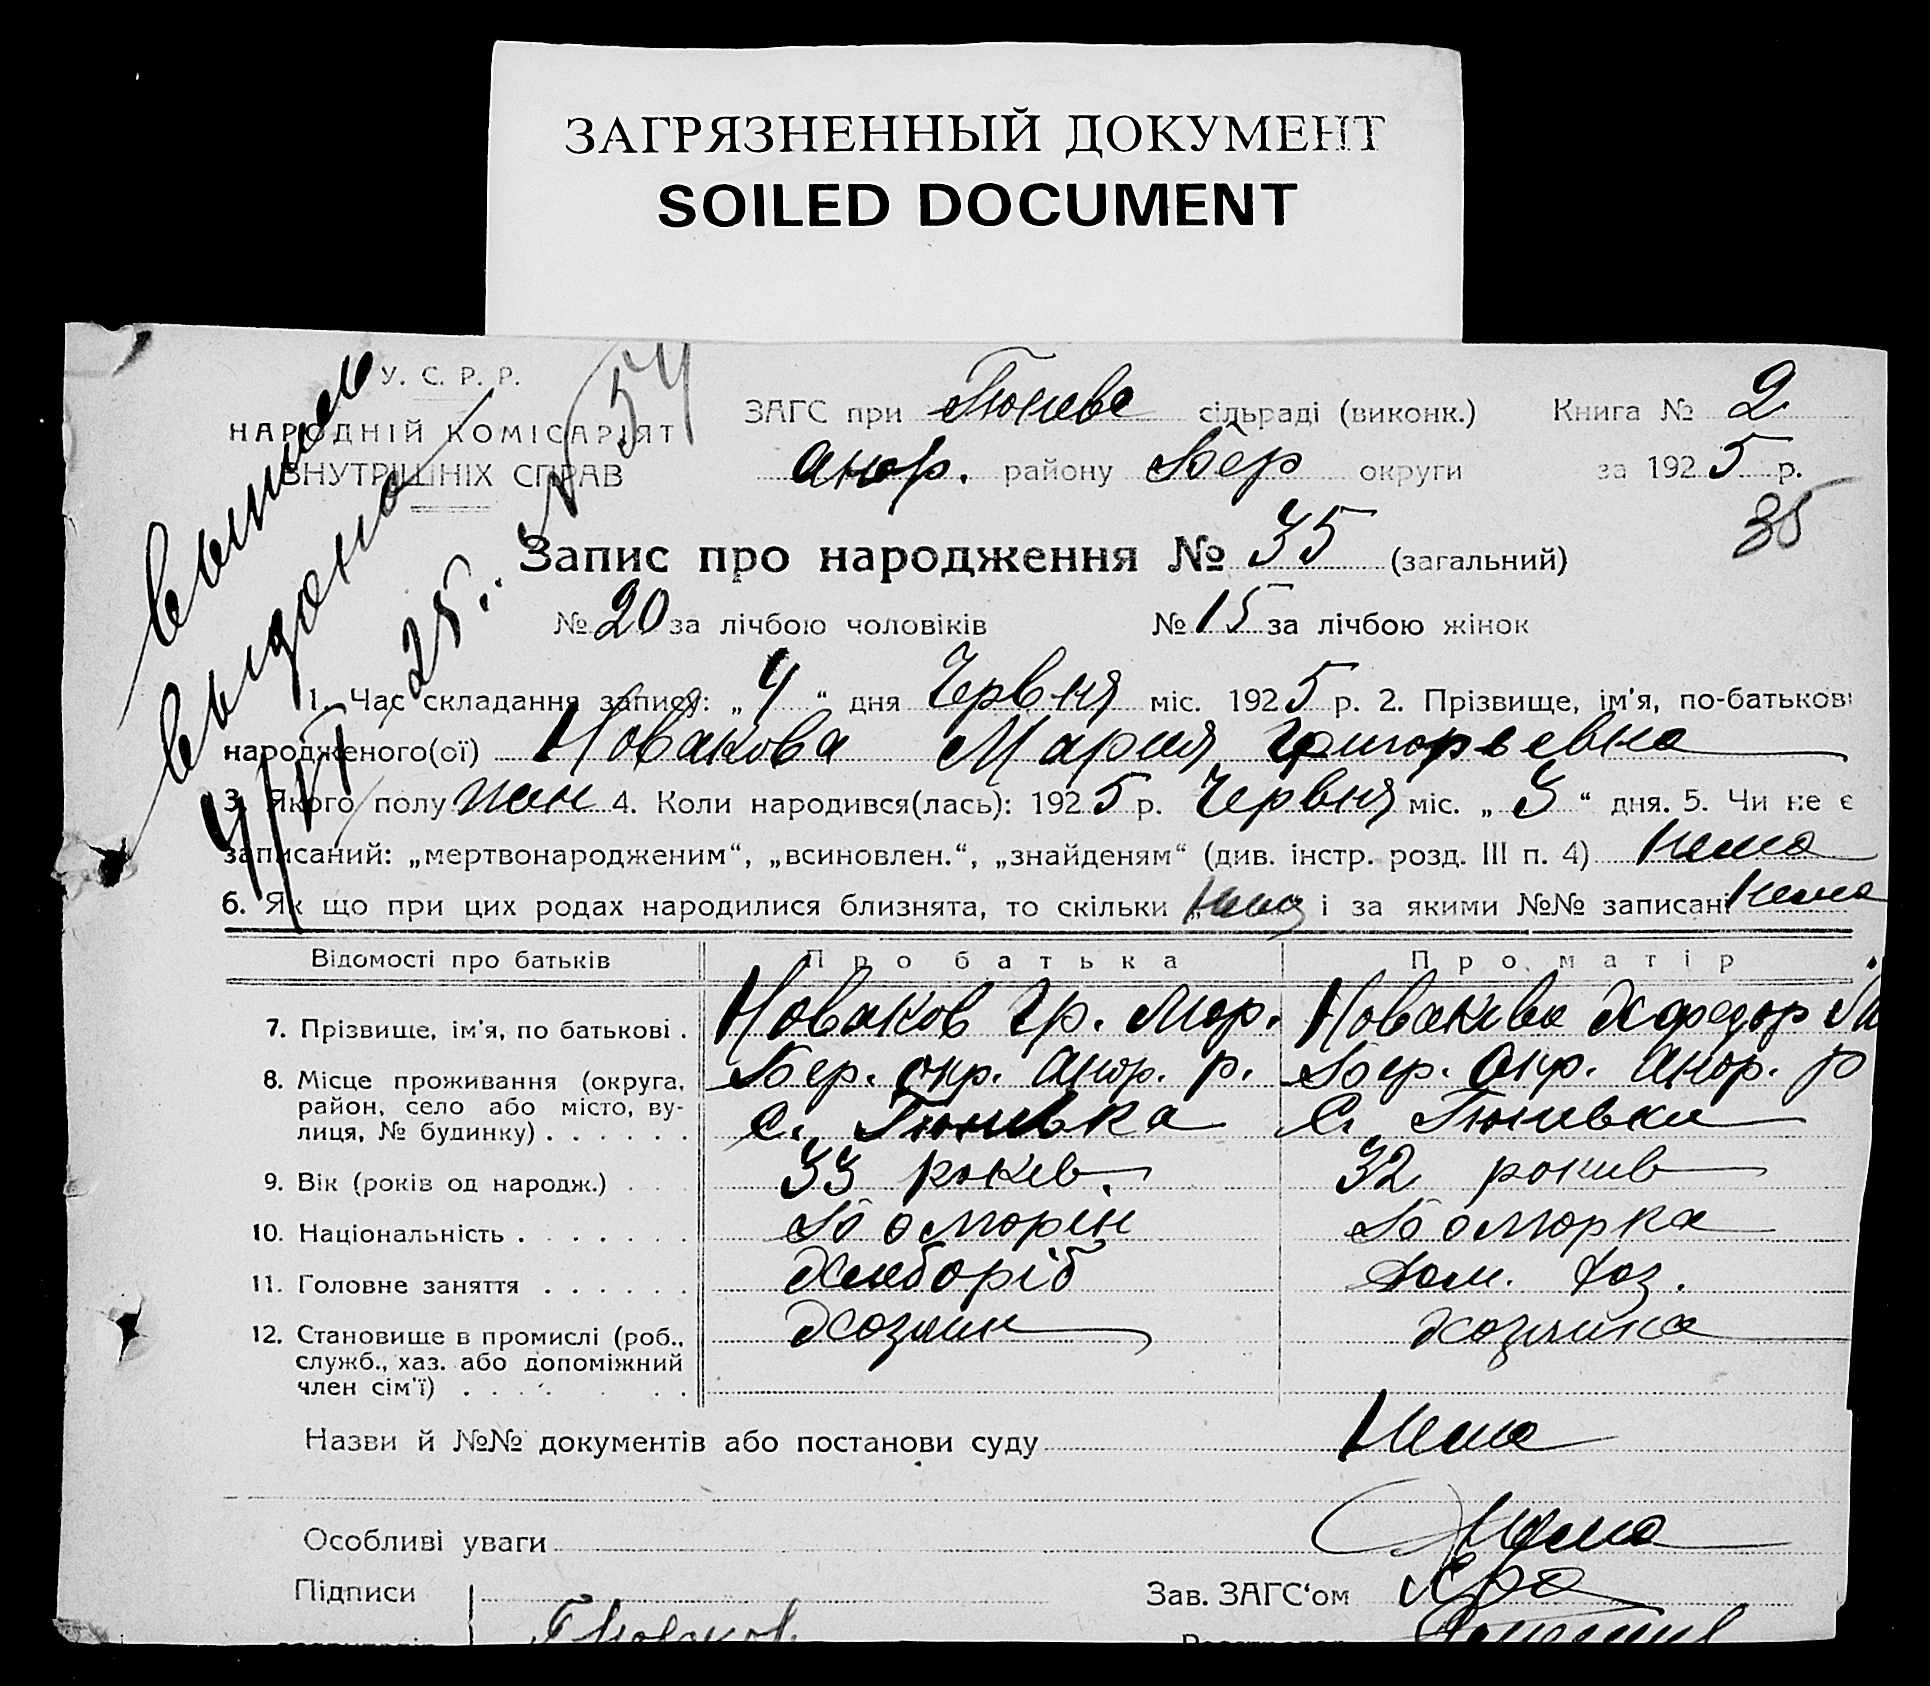 ЗАГРЯЗНЕННЫЙ ДОКУМЕНТ
SOILED DOCUMENT
У. С. Р. Р.
НАРОДНІЙ КОМІСАРІЯТ
ВНУТРІШНІХ СПРАВ
выдана
4/VI 25. N 54
ЗАГС при Тюневс сільраді (виконк.) Книга № 2
Анор. району Бер округи за 1925 р.
35
Запис про народження № 35 (загальний)
№ 20 за лічбою чоловіків № 15 за лічбою жінок
1. Час складання запису: „4“ дня Червня міс. 1925 р. 2. Прізвище, ім'я, по-батькові
народженого(ої) Новакова Мария Григорьевна
3. Якого полу жен 4. Коли народився(лась): 1925 р. Червня міс. „3“ дня. 5. Чи не є
записаний: „мертвонародженим“, „всиновлен.“, „знайденям“ (див. інстр. розд. III п. 4) нема
6. Як що при цих родах народилися близнята, то скільки нема і за якими №№ записані нема
Відомості про батьків Про батька Про матір
7. Прізвище, ім'я, по батькові . Новаков Гр. Мар. Новакова
8. Місце проживання (округа, район, село або місто, вулиця, № будинку) . . . . . . Бер. окр. Анор. р. Бер. Окр. Анор. р
с. Тюнивка с. Тюнивка
9. Вік (років од народж.) . . . 33 рокив. 32 рокив
10. Національність . . . . . . . Боморін Боморка
11. Головне заняття . . . . . . Хлиборіб Дом. хоз.
12. Становище в промислі (роб., служб., хаз. або допоміжний член сім'ї) . . . . . . Хозяин хозяика
Назви й №№ документів або постанови суду нема
Особливі уваги Нема
Підписи Зав. ЗАГС'ом
Г Новаков